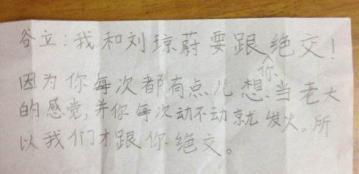 谷立：我和刘琼蔚要跟你绝交！
因为你每次都有点儿想当老大
的感觉，并你每次动不动就发火。所
以我们才跟你绝交。